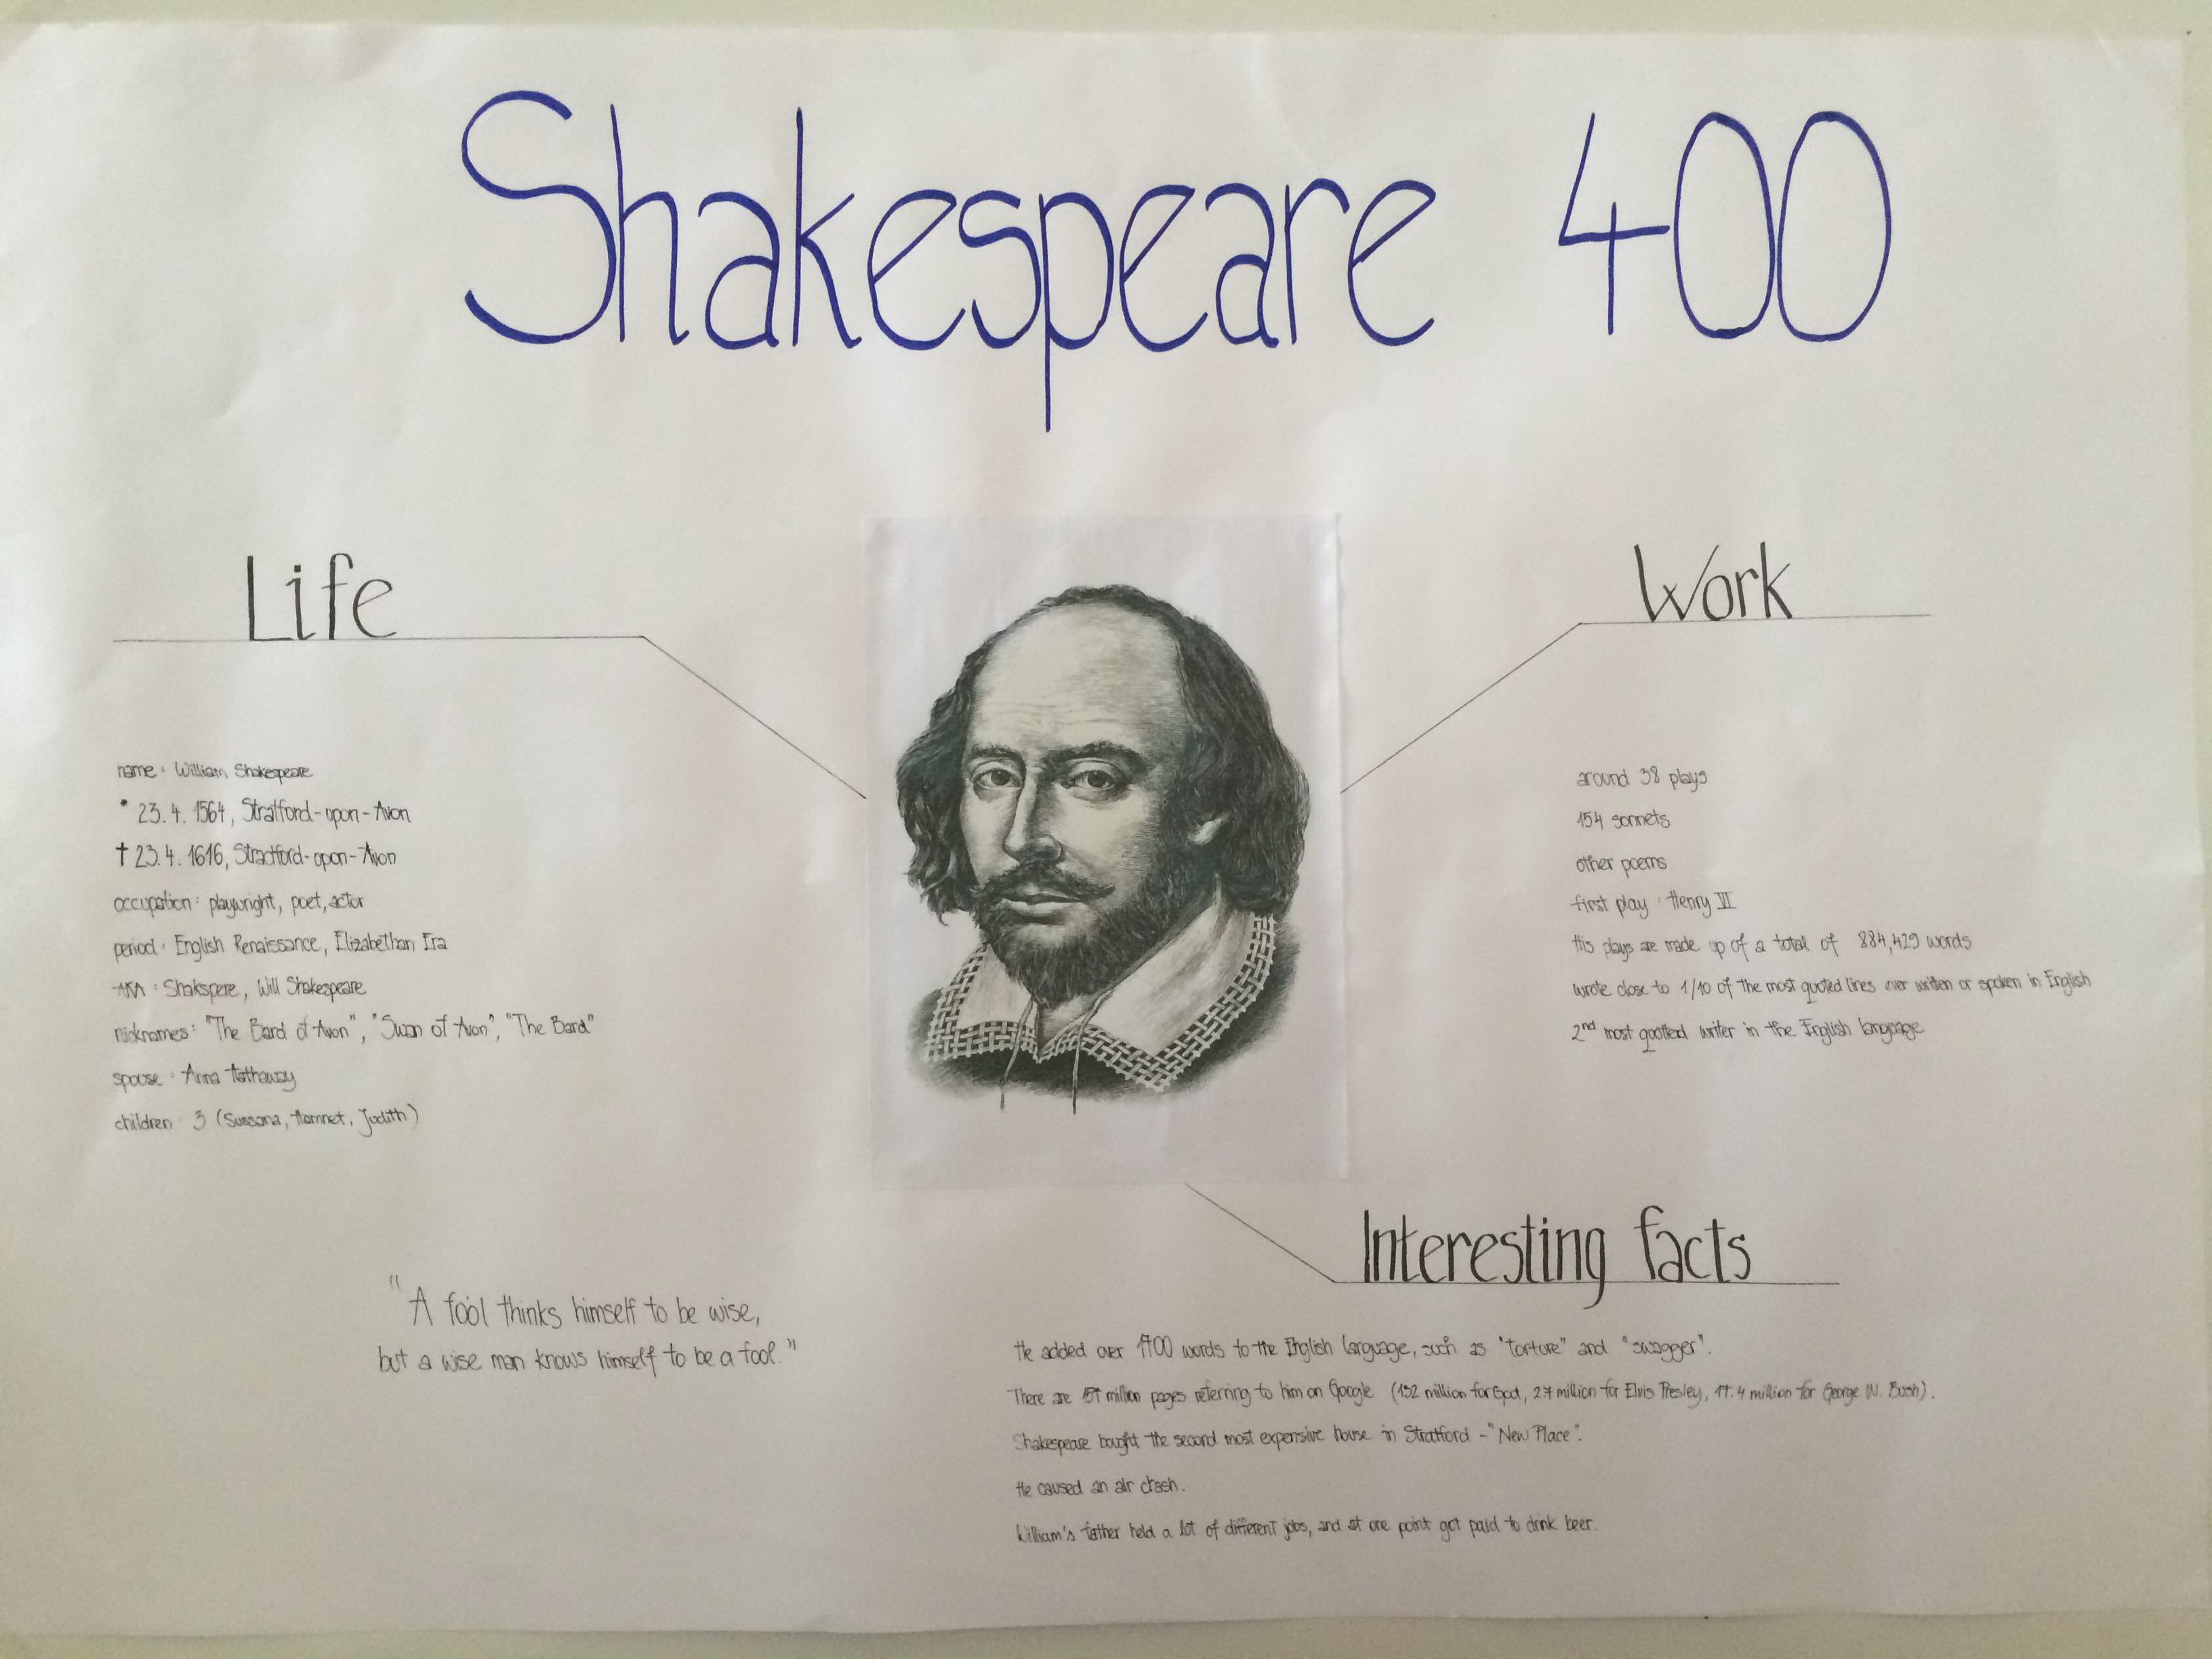 Shakespeare 400
Life
name: William Shakespeare
* 23. 4. 1564, Stratford-upon-Avon
† 23. 4. 1616, Stratford-upon-Avon
occupation: playwright, poet, actor
period: English Renaissance, Elizabethan Era
AKA: Shakspere, Will Shakespeare
nicknames: "The Bard of Avon", "Swan of Avon", "The Bard"
spouse: Anna Hathaway
children: 3 (Sussana, Hamnet, Judith)
Work
around 38 plays
154 sonnets
other poems
first play: Henry VI
His plays are made up of a total of 884,429 words
wrote close to 1/10 of the most quoted lines ever written or spoken in English
2nd most quotted writer in the English language
"A fool thinks himself to be wise,
but a wise man knows himself to be a fool."
Interesting facts
He added over 1700 words to the English language, such as "torture" and "swagger".
There are 157 million pages referring to him on Google (132 million for God, 2.7 million for Elvis Presley, 17.4 million for George W. Bush).
Shakespeare bought the second most expensive house in Stratford - "New Place".
He caused an air crash.
William's father held a lot of different jobs, and at one point got paid to drink beer.